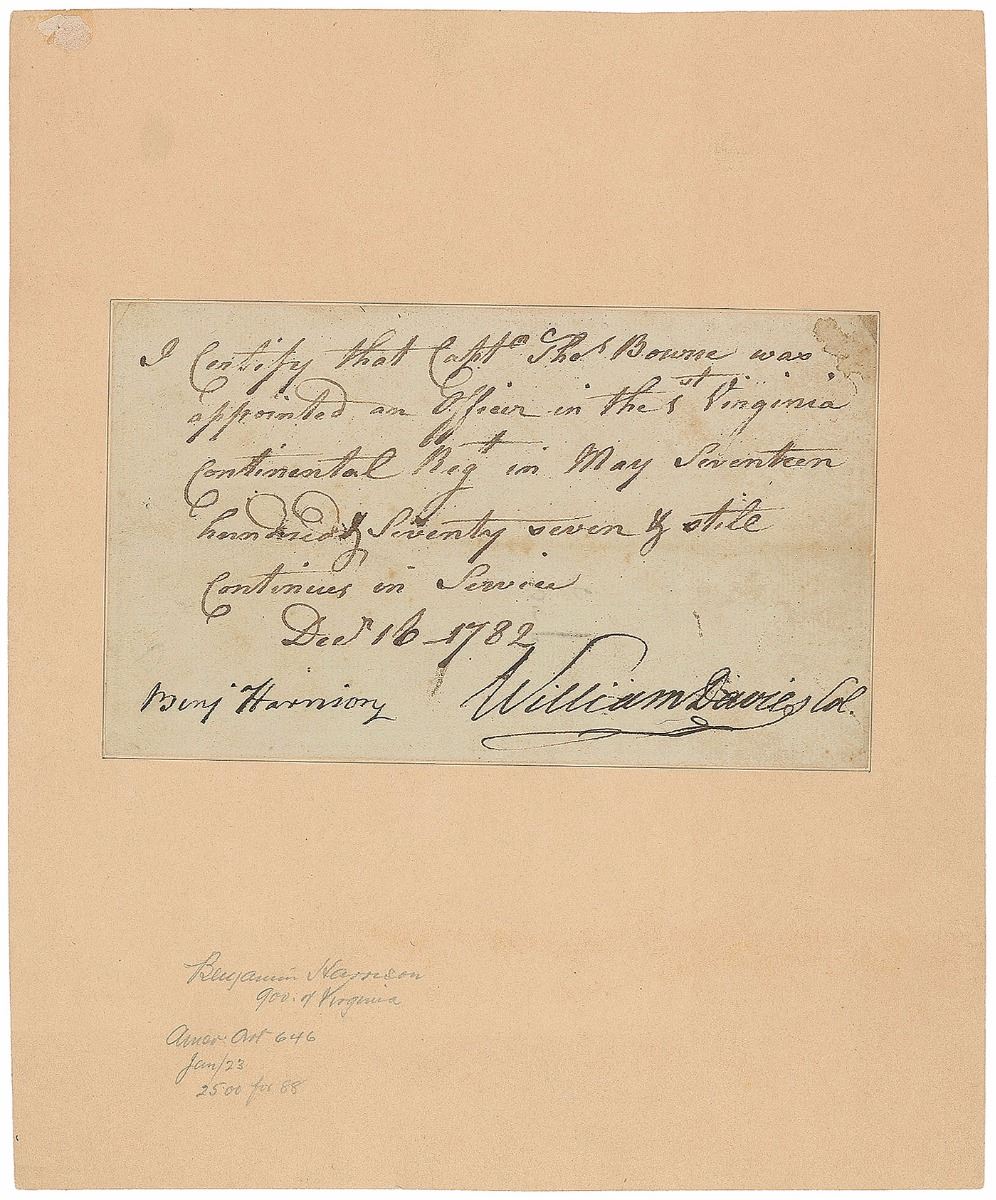 I Certify that Capt.n Thos Bourne was
appointed an Officer in the 1st Virginia
Continental Regt in May Seventeen
hundred & Seventy seven & still
Continues in Service
Decr 16 1782
Benj Harrison
William Davies Col.
Benjamin Harrison
Gov. of Virginia
Amer. Art 646
Jan/23
2500 for 88